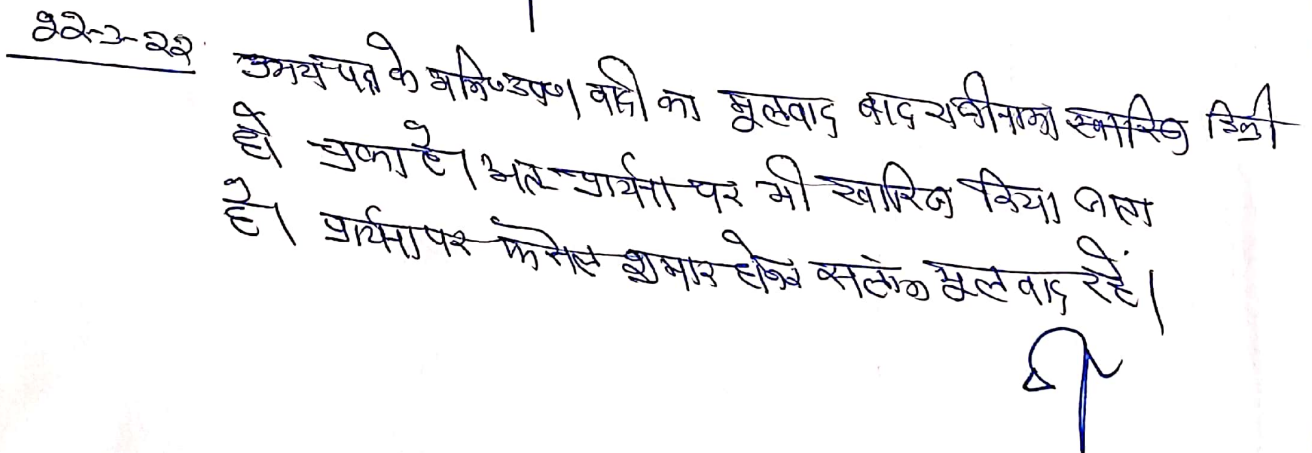 22-2-22 उभय पक्ष के अभि० उप०। वादी का मूलवाद बाद राजीनामा खारिज डिक्री
हो चुका है। अतः प्रार्थना पत्र भी खारिज किया जाता
है। प्रार्थना पत्र फैसल शुमार होकर संलग्न मूल वाद रहे।